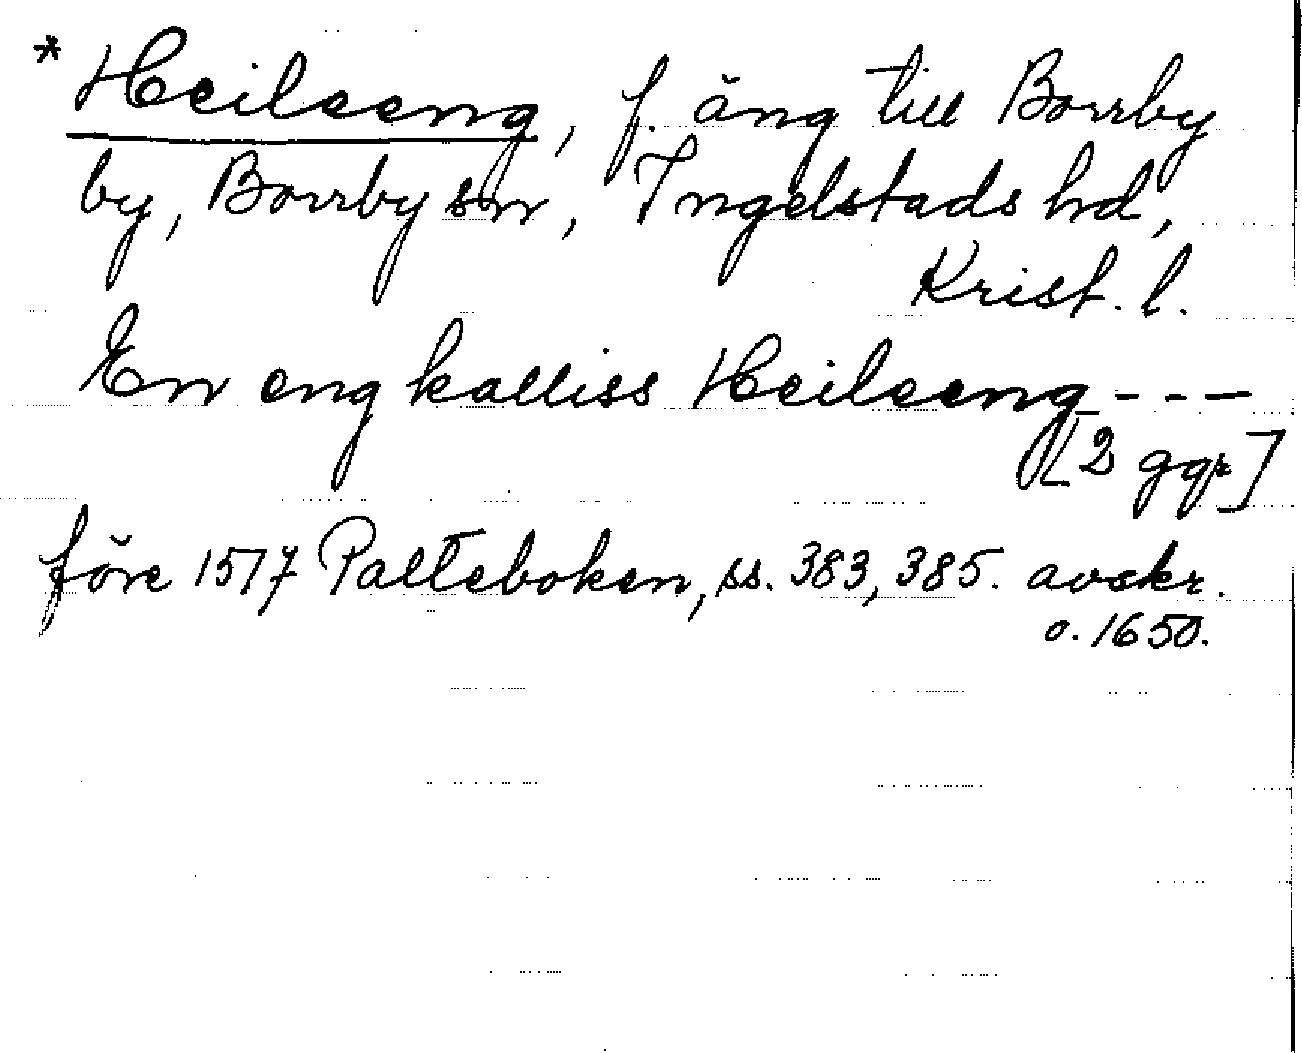 * Heileeng, f. äng till Borrby
by, Borrby sn, Ingelstads hd,
Krist. l.
En eng kalliss Heileeng - - -
[2 ggr]
före 1577 Palteboken, ss. 383, 385. avskr.
o. 1650.